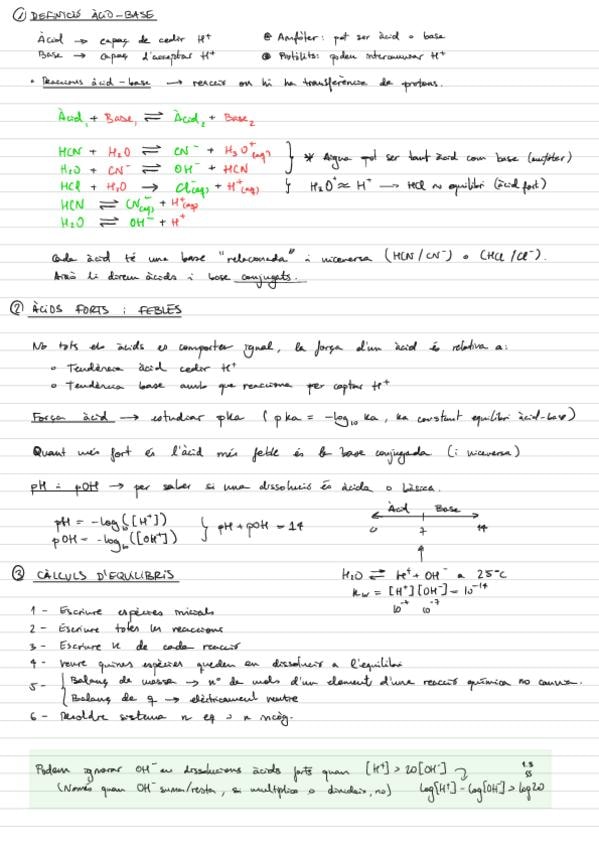 ① DEFINICIÓ ÀCID-BASE
Àcid → capaç de cedir H⁺
Base → capaç d'acceptar H⁺
⊛ Amfòter: pot ser àcid o base
⊛ Pròtilits: poden intercanviar H⁺
• Reaccions àcid-base → reacció on hi ha transferència de protons.
Àcid₁ + Base₁ ⇌ Àcid₂ + Base₂
HCN + H₂O ⇌ CN⁻ + H₃O⁺(aq)
H₂O + CN⁻ ⇌ OH⁻ + HCN
} * Aigua pot ser tant àcid com base (amfòter)
HCl + H₂O → Cl⁻(aq) + H⁺(aq) } H₃O⁺ ≈ H⁺ → HCl ~ equilibri (àcid fort)
HCN ⇌ CN⁻(aq) + H⁺(aq)
H₂O ⇌ OH⁻ + H⁺
Cada àcid té una base "relacionada" i viceversa (HCN/CN⁻) o (HCl/Cl⁻).
Això li direm àcids i base conjugats.
② ÀCIDS FORTS i FEBLES
No tots els àcids es comporten igual, la força d'un àcid és relativa a:
• Tendència àcid cedir H⁺
• Tendència base amb que reacciona per captar H⁺
Força àcid → estudiar pka (pka = -log₁₀ ka, ka constant equilibri àcid-base)
Quant més fort és l'àcid més feble és la base conjugada (i viceversa)
pH i pOH → per saber si una dissolució és àcida o bàsica.
pH = -log₁₀([H⁺])
pOH = -log₁₀([OH⁻])
} pH + pOH = 14
Àcid Base
0 7 14
H₂O ⇌ H⁺ + OH⁻ a 25ºC
kw = [H⁺][OH⁻] = 10⁻¹⁴
10⁻⁷ 10⁻⁷
③ CÀLCULS D'EQUILIBRIS
1 - Escriure espècies inicials
2 - Escriure totes les reaccions
3 - Escriure K de cada reacció
4 - Veure quines espècies queden en dissolució a l'equilibri
5 - { Balanç de massa → nº de mols d'un element d'una reacció química no canvia.
Balanç de q → elèctricament neutre
6 - Resoldre sistema n eq i n incòg.
Podem ignorar OH⁻ en dissolucions àcids forts quan [H⁺] > 20[OH⁻]
(Només quan OH⁻ suma/resta, si multiplica o divideix, no) log[H⁺] - log[OH⁻] > log20
1.3